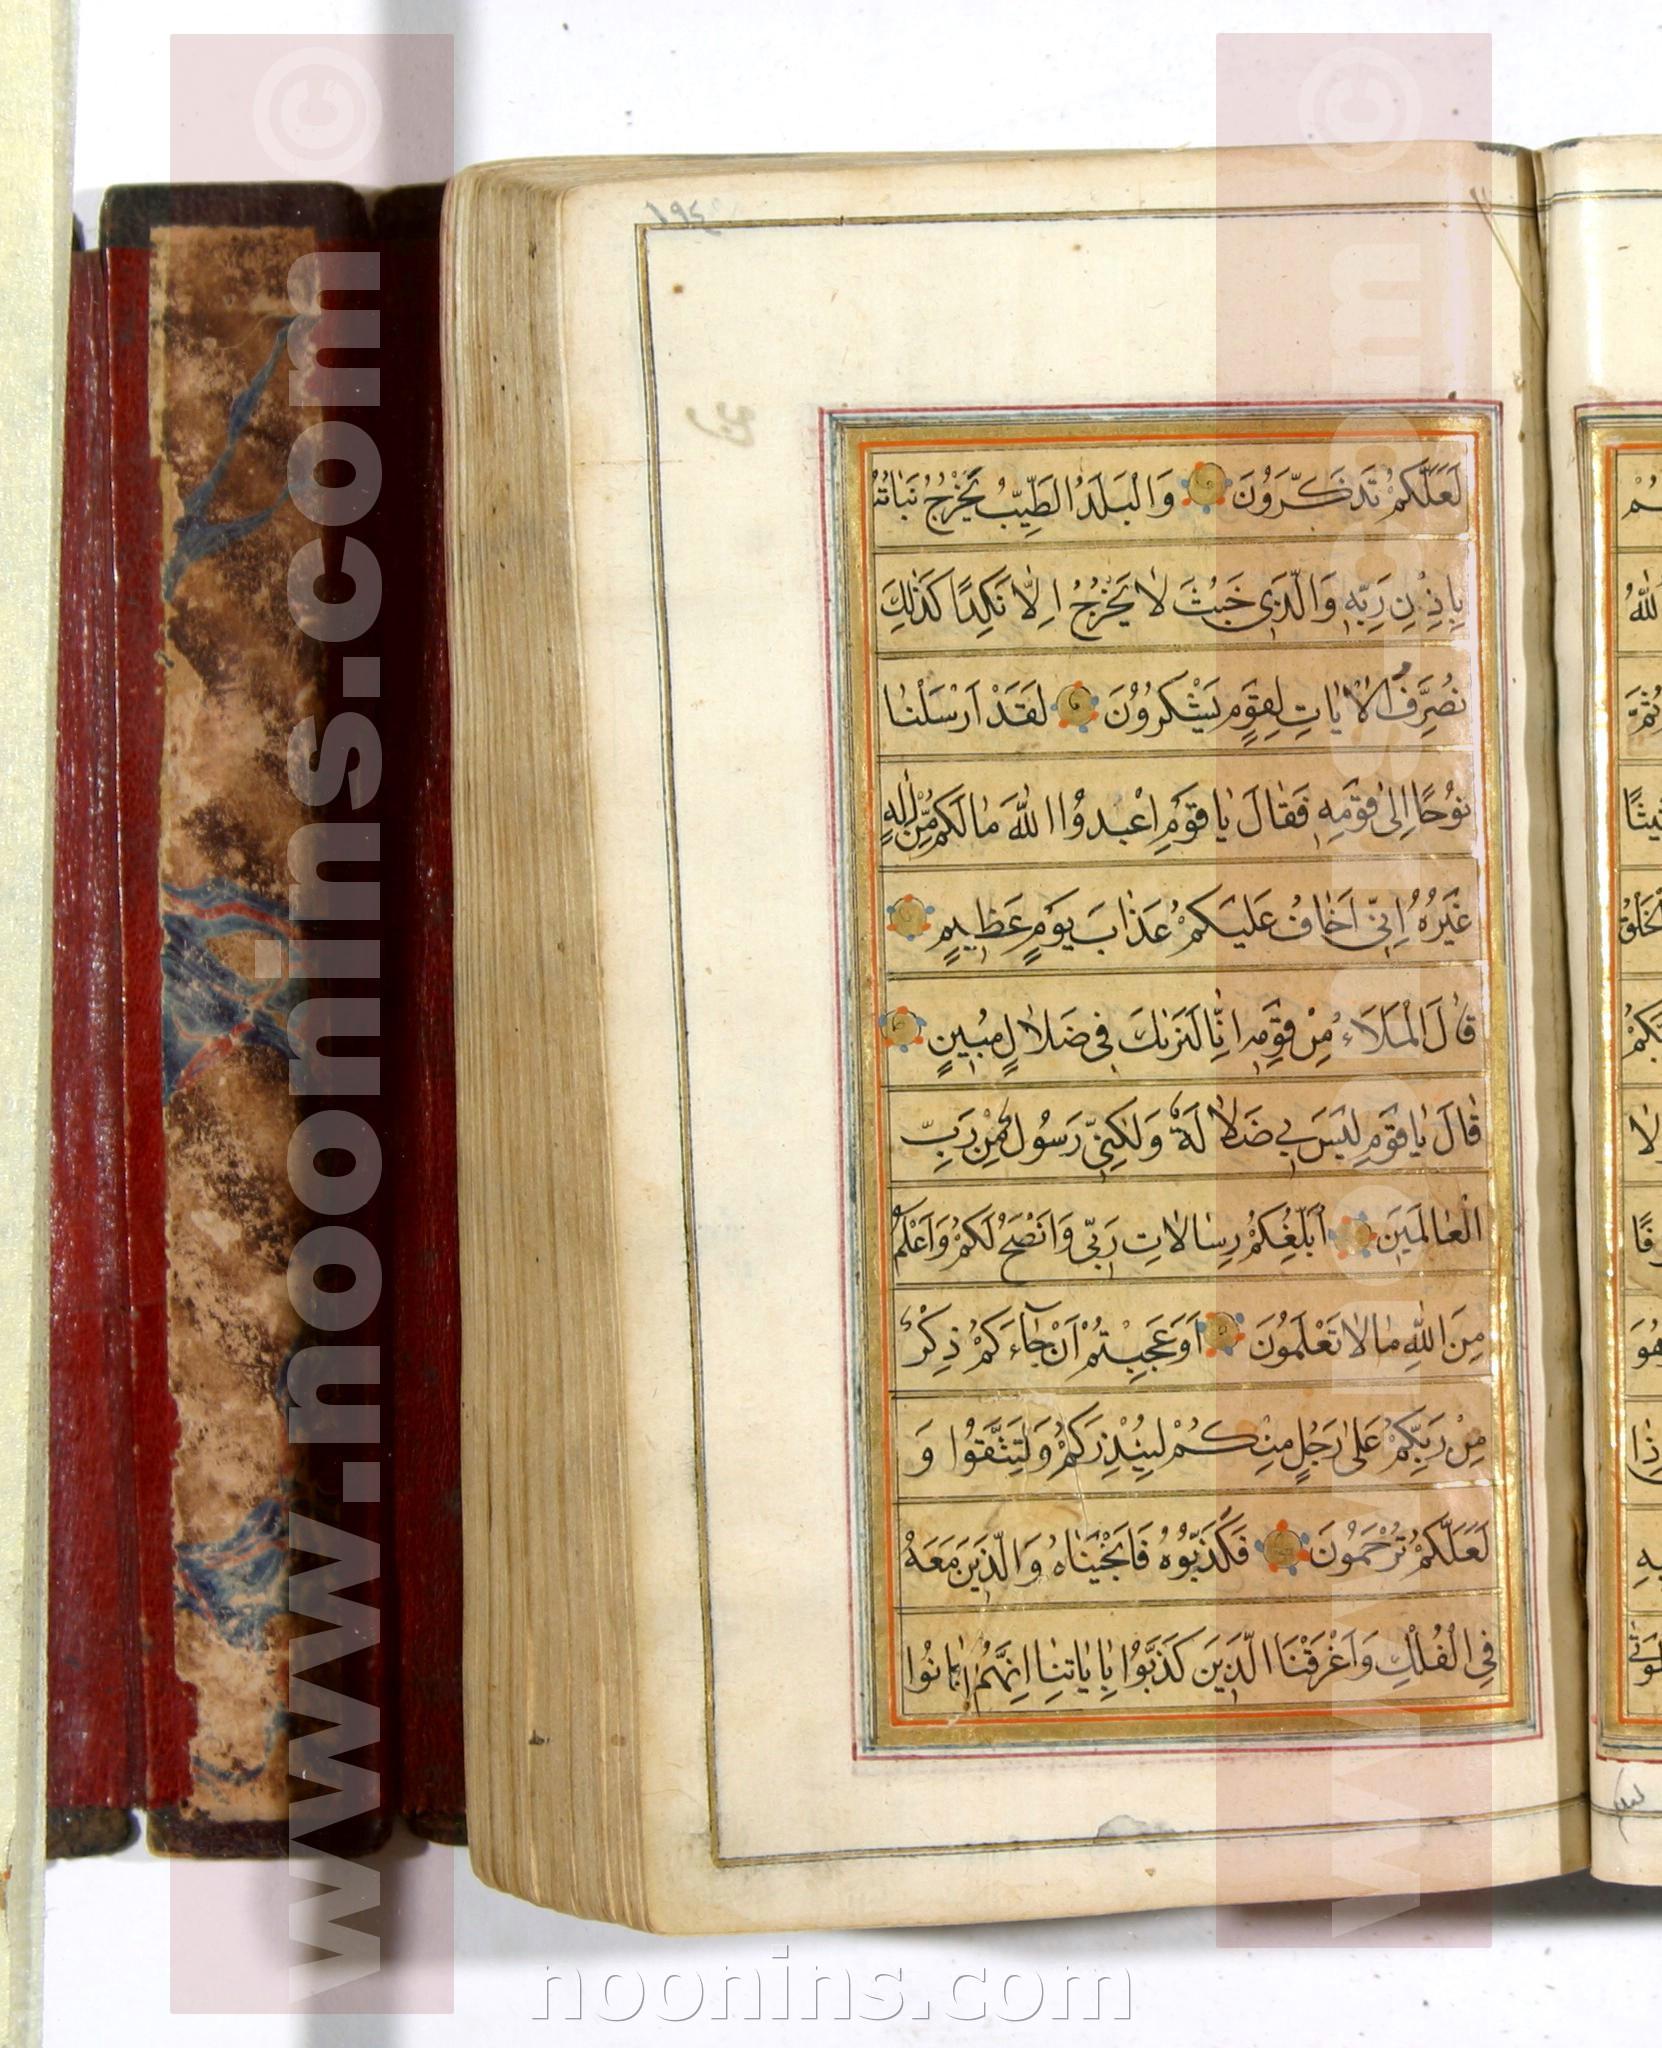 ١٩٤
لَعَلَّكُمْ تَذَكَّرَوُنَ وَالْبَلَدُ الطَّيِّبُ يَخْرُجُ نَبَاتُهُ
بِاِذْنِ رَبِّهِ وَالَّذِى خَبُثَ لاٰ يَخْرُجُ اِلّاٰ نَكِدًا كَذٰلِكَ
نُصَرِّفُ الْاٰيٰاتِ لِقَوْمٍ يَشْكُرُوُنَ لَقَدْ اَرْسَلْنٰا
نُوُحًا اِلىٰ قَوْمِهِ فَقٰالَ يٰا قَوْمِ اعْبُدوُا اللّٰهَ مٰا لَكُمْ مِنْ اِلٰهٍ
غَيْرُهُ اِنِّى اَخٰافُ عَلَيْكُمْ عَذٰابَ يَوْمٍ عَظٖيمٍ
قٰالَ الْمَلَاَءُ مِنْ قَوْمِهِ اِنّٰا لَنَرٰىكَ فِى ضَلاٰلٍ مُبيٖنٍ
قٰالَ يٰا قَوْمِ لَيْسَ بىٖ ضَلاٰلَةٌ وَلٰكِنّىٖ رَسُولٌ مِنْ رَبِّ
الْعٰالَميٖنَ اُبَلِّغُكُمْ رِسٰالاٰتِ رَبّىٖ وَاَنْصَحُ لَكُمْ وَاَعْلَمُ
مِنَ اللّٰهِ مٰا لاٰ تَعْلَمُوُنَ اَوَعَجِبْتُمْ اَنْ جٰآءَكُمْ ذِكْرٌ
مِنْ رَبِّكُمْ عَلىٰ رَجُلٍ مِنْكُمْ لِيُنْذِرَكُمْ وَلِتَتَّقُوا وَ
لَعَلَّكُمْ تُرْحَمُوُنَ فَكَذَّبُوُهُ فَاَنْجَيْنٰاهُ وَالَّذيٖنَ مَعَهُ
فِى الْفُلْكِ وَاَغْرَقْنَا الَّذيٖنَ كَذَّبُوا بِاٰيٰاتِنٰا اِنَّهُمْ كٰانُوا
www.noonins.com ©
www.noonins.com ©
noonins.com